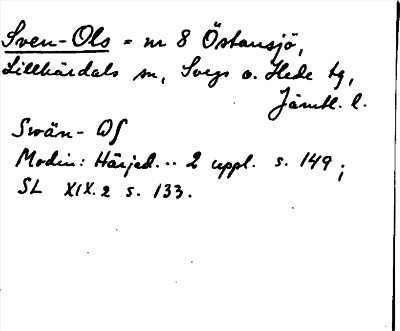 Sven-Ols = nr 8 Östansjö,
Lillhärdals sn, Svegs o. Hede tg,
Jämtl. l.
Swän-Ols
Modin: Härjed... 2 uppl. s. 149;
SL XIX.2 s. 133.